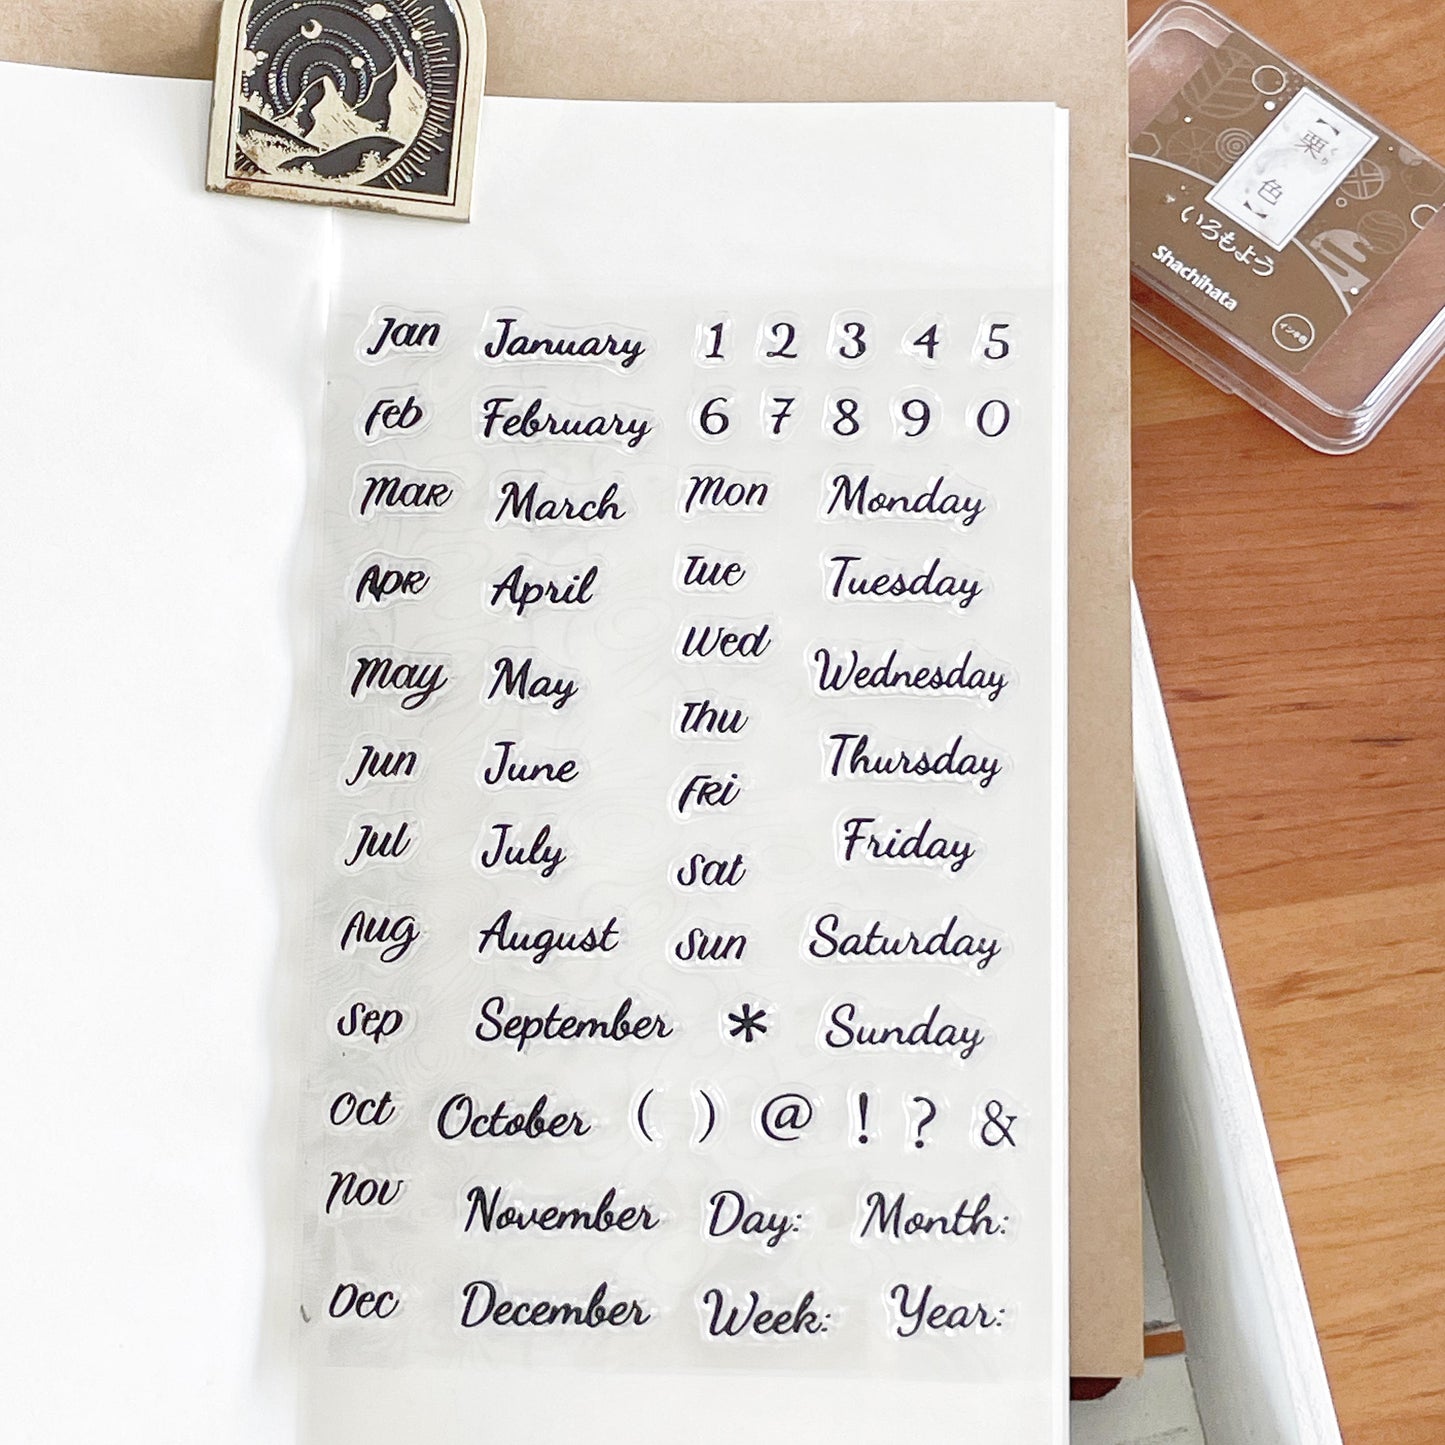 Jan January 1 2 3 4 5
Feb February 6 7 8 9 0
Mar March Mon Monday
Apr April Tue Tuesday
May May Wed Wednesday
Jun June Thu Thursday
Jul July Fri Friday
Aug August Sat Saturday
Sep September Sun Sunday
*
Oct October ( ) @ ! ? &
Nov November Day: Month:
Dec December Week: Year:
【栗色】
くり
いろもよう
Shachihata